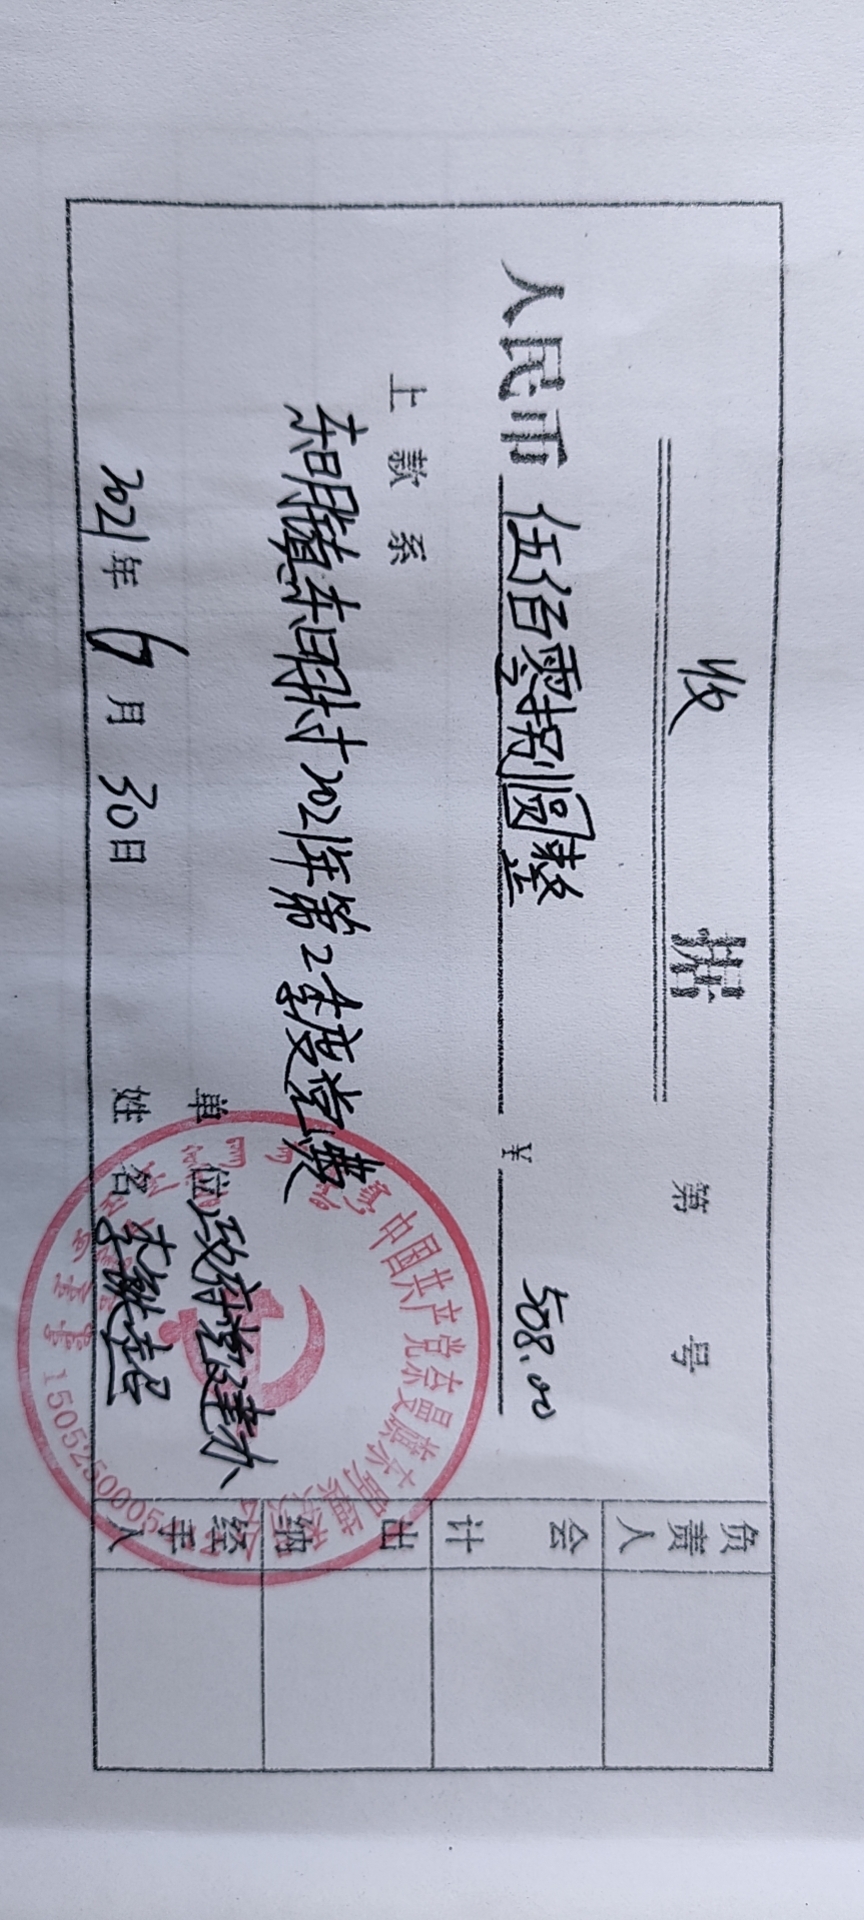 收 据
第 号
人民币 伍佰零捌圆整 ¥ 508.00
上款系
东明镇东明村2021年第2季度党费
单位 政府党建办
2021年6月30日 姓名 李敏超
负责人
会计
出纳
经手人
中国共产党奈曼旗东明镇
1505250005